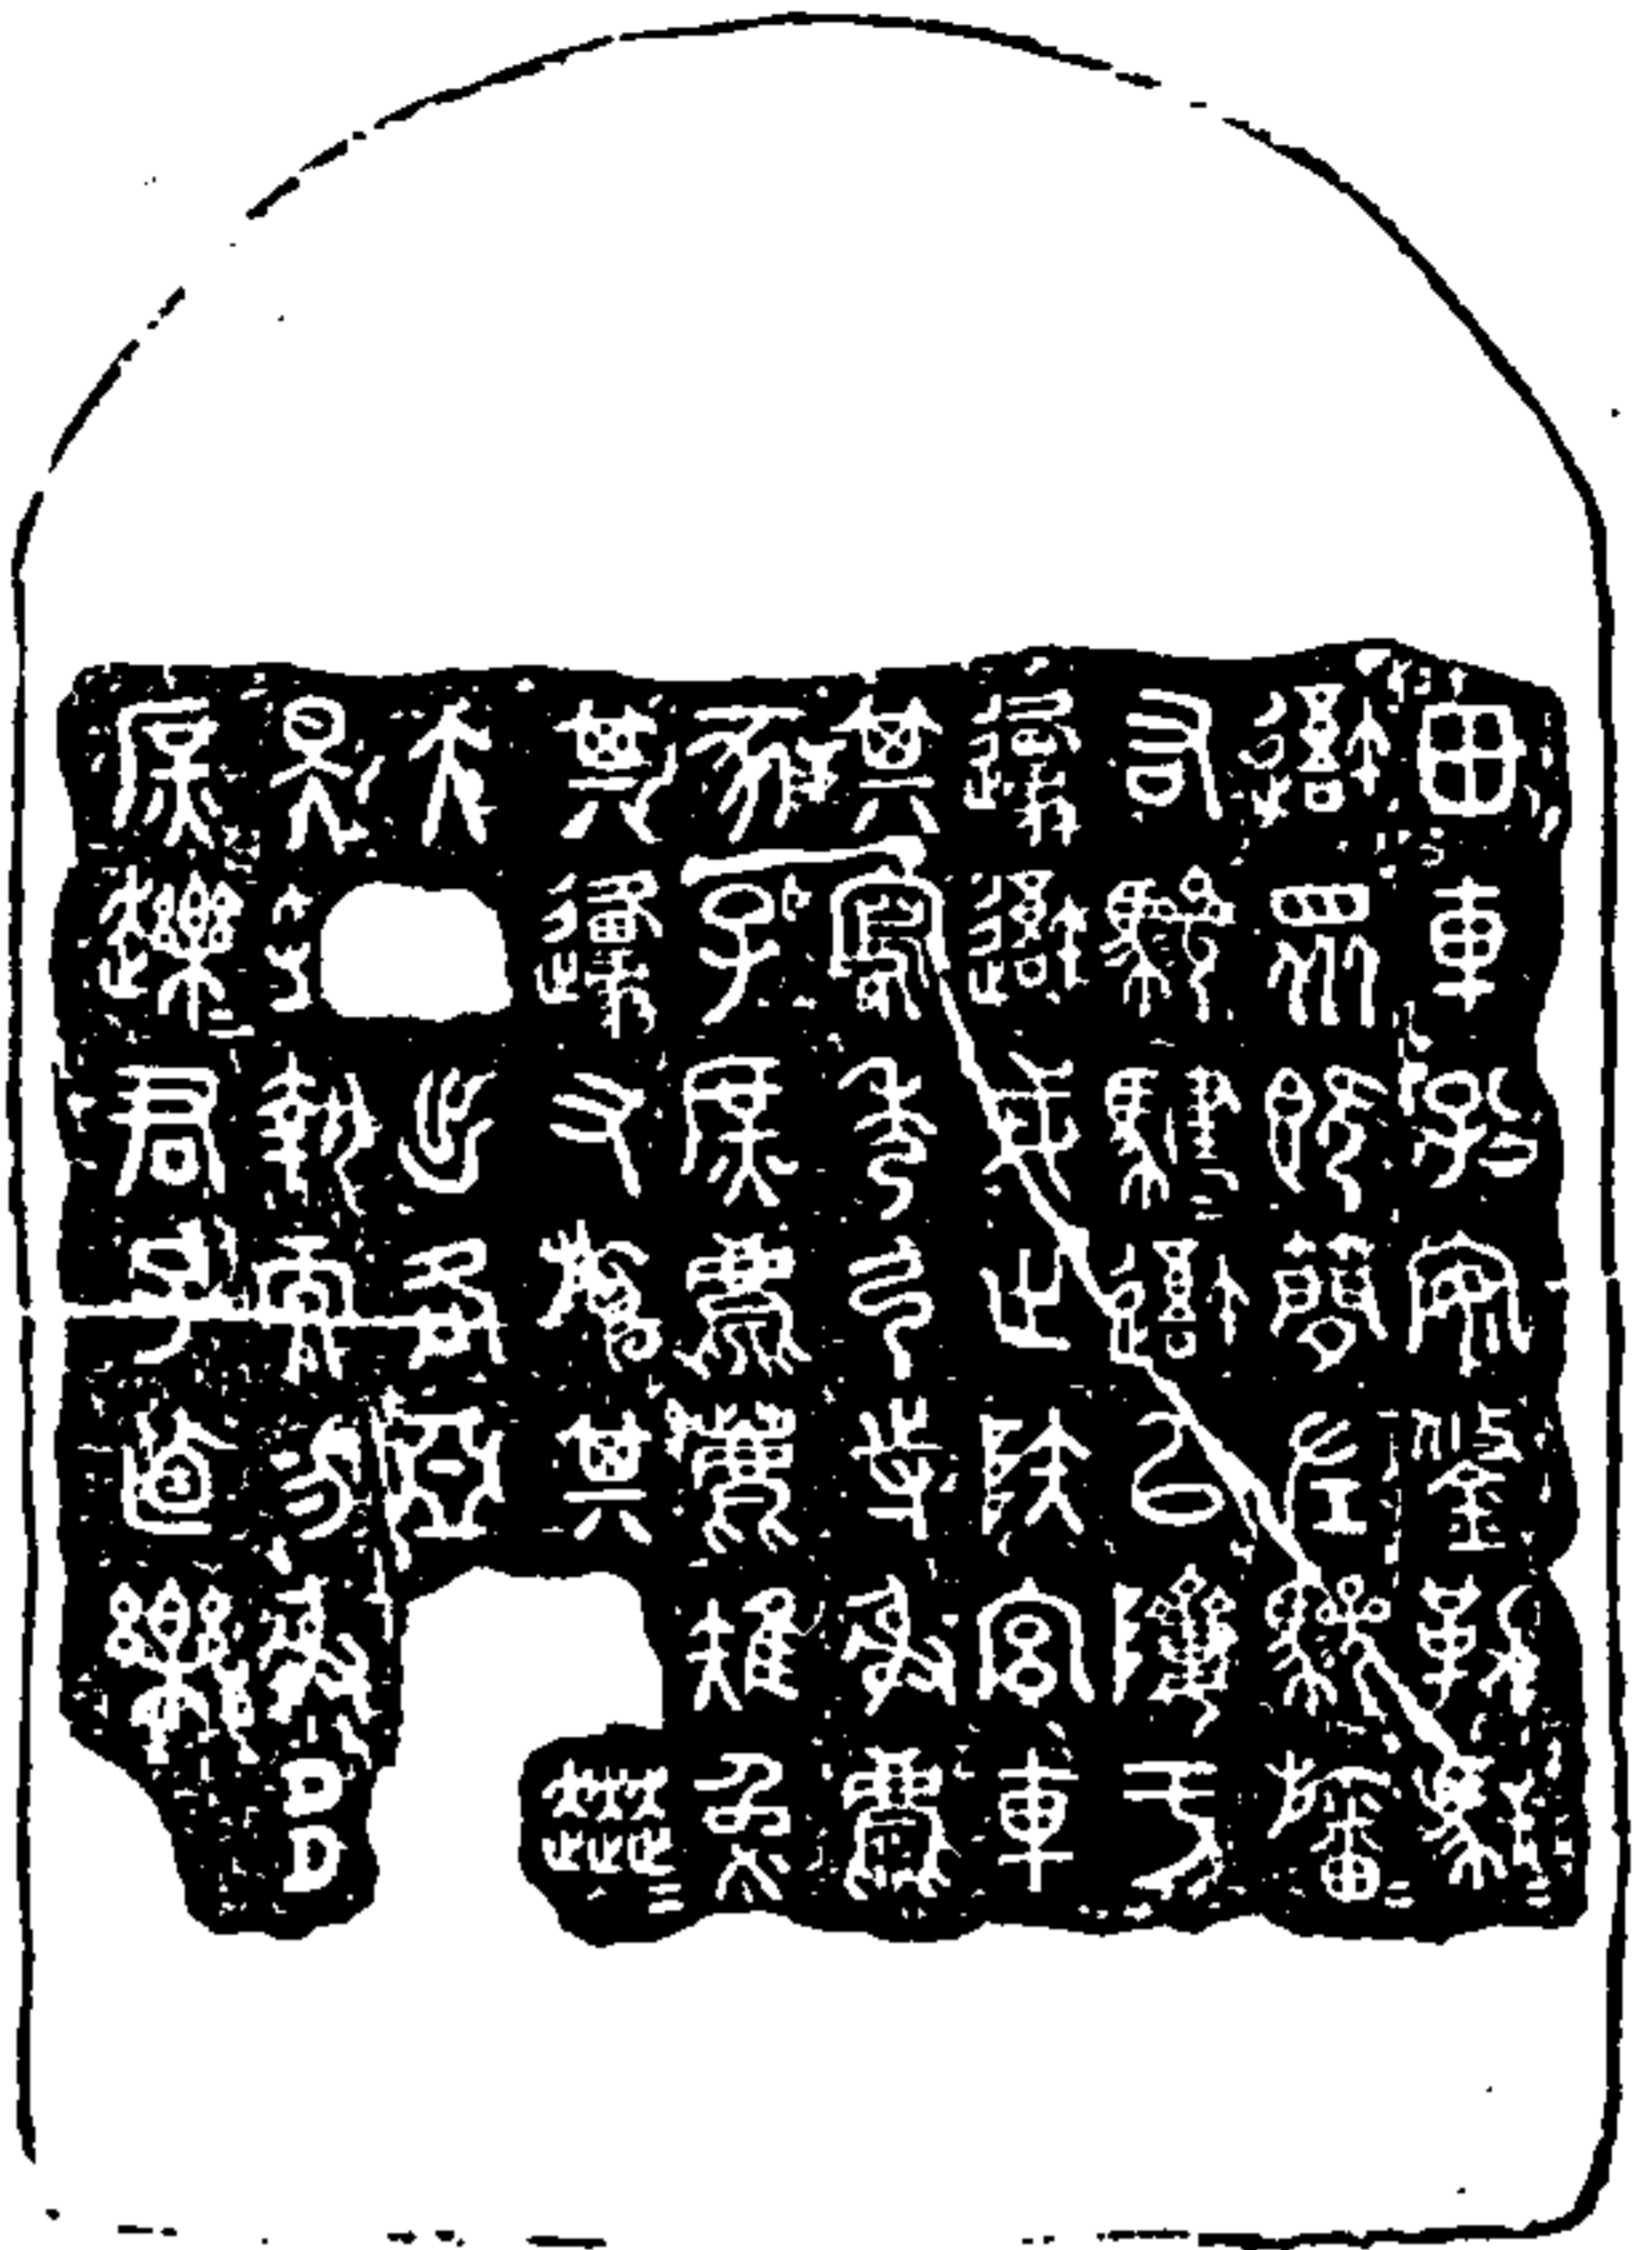 田車孔安鋚勒
四介既簡左驂旛
右驂騝以隮于
邍戎止陜宮車
其寫秀弓寺射麋
豕孔庶麀鹿雉兔
其邍又旃其
大出各亞
昊執而勿射多
庶君子逌樂